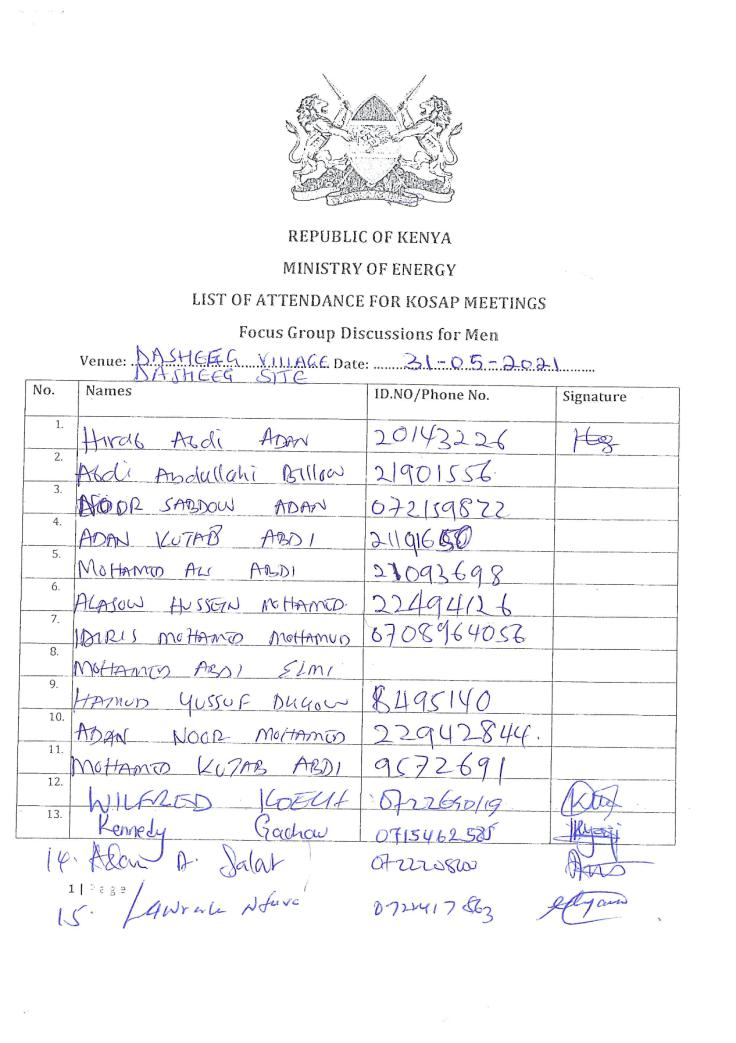 REPUBLIC OF KENYA
MINISTRY OF ENERGY
LIST OF ATTENDANCE FOR KOSAP MEETINGS
Focus Group Discussions for Men
Venue: DASHEEG VILLAGE Date: 31-05-2021
DASHEEG SITE
No. Names ID.NO/Phone No. Signature
1. Hirab Abdi ADAN 20143226
2. Abdi Abdullahi Billow 21901556
3. NOOR SABDOW ADAN 072159822
4. ADAN KUTAB ABDI
5. MOHAMED ALI ABDI 21093698
6. ALASOW HUSSEIN MOHAMED. 22494126
7. IDIRIS MOHAMED MOHAMUD 0708964056
8. MOHAMED ABDI ELMI
9. HAMUD YUSSUF DUGOW 8495140
10. ADAN NOOR MOHAMED 22942844.
11. MOHAMED KUTAB ABDI 9572691
12. WILFRED KOECH 0722690119
13. Kennedy Gachau 0715462585
14. Adan A. Salat
1 | Page
15.